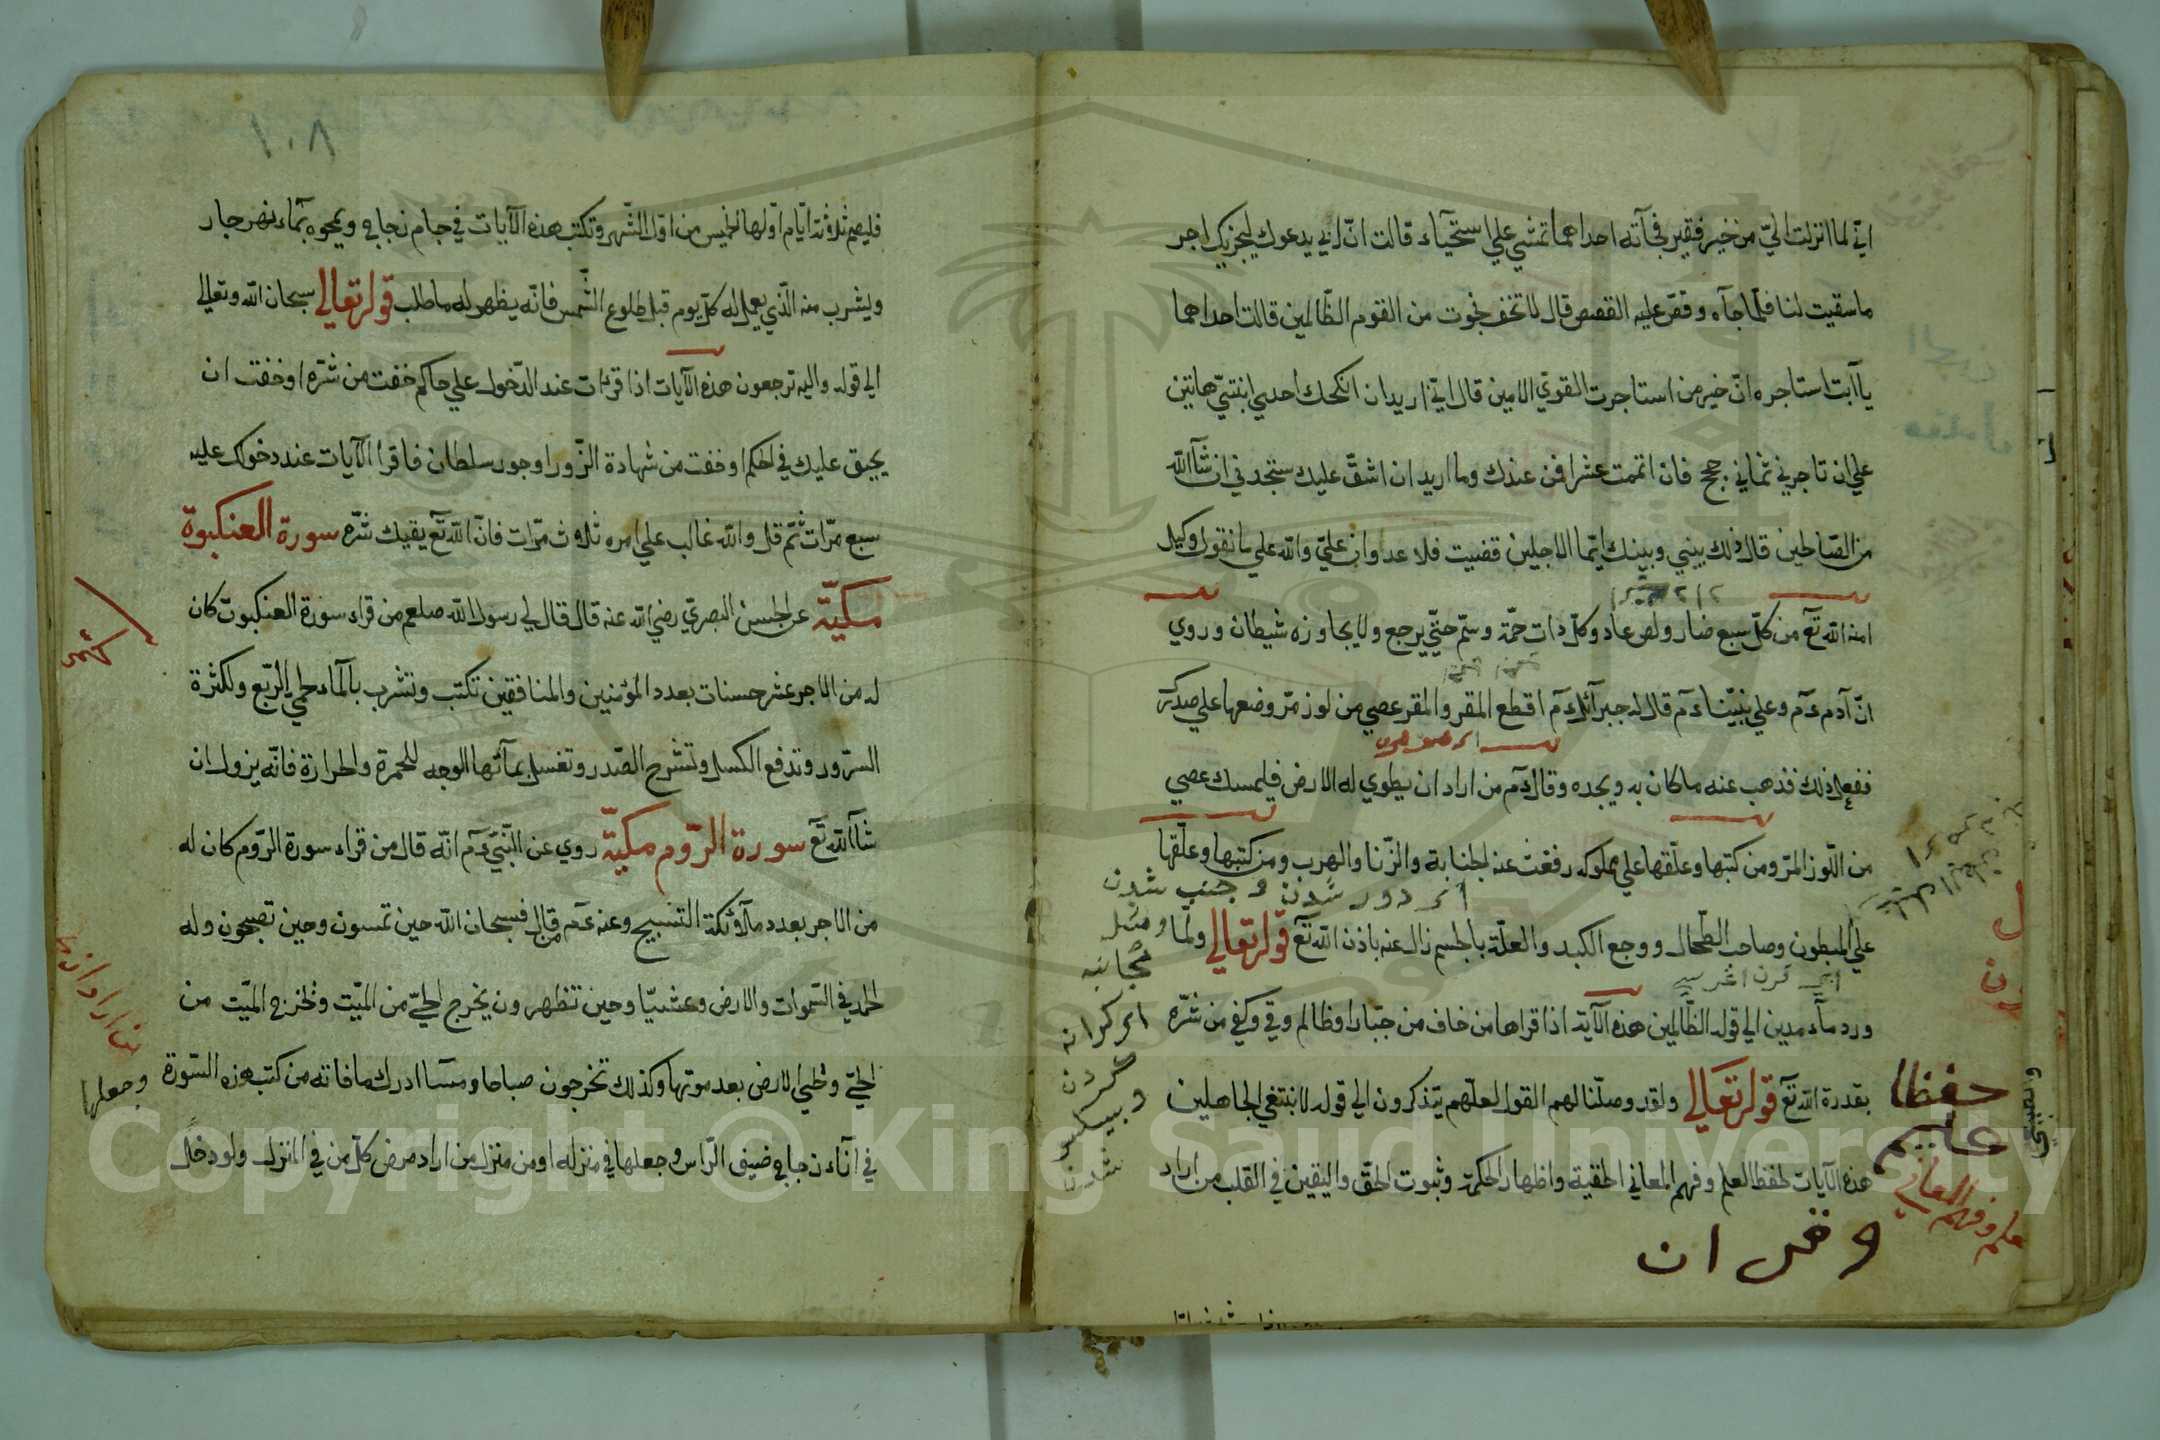 اني لما انزلت اليّ من خير فقير فجآته احداهما تمشي علي استحيآء قالت انّ ابي يدعوك ليجزيك اجر
ما سقيت لنا فلمّا جآه وقصّ عليه القصص قال لا تخف نجوت من القوم الظّالمين قالت احداهما
يآ ابت استاجره انّ خير من استاجرت القويّ الامين قال انّي اريد ان انكحك احدي ابنتيّ هاتين
علي ان تاجرني ثماني حجج فان اتممت عشرا فمن عندك وما اريد ان اشقّ عليك ستجدني ان شآ الله
من الصّالحين قال ذلك بيني وبينك ايّما الاجلين قضيت فلا عدوان عليّ والله علي ما نقول وكيل
امنه الله تع من كلّ سبع ضار ولص عاد وكلّ ذات حمّة وسمّ حتّي يرجع ولا يجاوزه شيطان وروي
انّ آدم عم وعلي نبيّنا عم قال له جبرآئل عم اقطع المقر والمقر عصي من لوز مرّ وضعها علي صدرك
ففعل ذلك فذهب عنه ما كان به ويجده وقال عم من اراد ان يطوي له الارض فليمسك عصي
من اللّوز المرّ ومن كتبها وعلّقها علي مملوكه رفعت عنه الجنابة والزّنا والهرب ومن كتبها وعلّقها
از دور شدن و جنب شدن
علي المبطون وصاحب الطّحال ووجع الكبد والعلّة بالجسم زال عنه باذن الله تع قوله تعالي ولمّا
ورد مآء مدين الي قوله الظّالمين هذه الآية اذا قراها من خاف من جبّارا وظالم وقي وكفي من شرّه
بقدرة الله تع قوله تعالي ولقد وصلّنا لهم القول لعلّهم يتذكرون الي قوله لا نبتغي الجاهلين
هذه الآيات لحفظ العلم وفهم المعاني الحقية واظهار الحكمة وثبوت الحقّ واليقين في القلب من اراد
حفظا
علم وفهم المعاني
١٠٨
فليصم ثلاثة ايّام اوّلها الخميس من اوّل الشّهر وتكتب هذه الآيات في جام زجاج ويمحوه بمآء نهر جار
ويشرب منه الّذي يعمل له كلّ يوم قبل طلوع الشّمس فانّه يظهر له ما طلب قوله تعالي سبحان الله وتعالي
الي قوله واليه ترجعون هذه الآيات اذا قرئات عند الدّخول علي حاكم خفت من شرّه او خفت ان
يحيق عليك في الحكم او خفت من شهادة الزّور او جور سلطان فاقرا الآيات عند دخولك عليه
سبع مرّات ثمّ قل والله غالب علي امره ثلاث مرّات فانّ الله تع يقيك شرّه سورة العنكبوة
مكيّة عن الحسن البصريّ رضي الله عنه قال قال لي رسول الله صلعم من قراء سورة العنكبوت كان
له من الاجر عشر حسنات بعدد المؤمنين والمنافقين تكتب وتشرب بالمآء لحمي الرّبع ولكثرة
السّرور وتدفع الكسل وتشرح الصّدر وتغسل بمآئها الوجه للحمرة والحرارة فانّه يزول ان
شآ الله تع سورة الرّوم مكيّة روي عن النّبيّ عم انّه قال من قراء سورة الرّوم كان له
من الاجر بعدد ملآئكة التسبيح وعنه عم من قال فسبحان الله حين تمسون وحين تصبحون وله
الحمد في السّموات والارض وعشيّا وحين تظهرون يخرج الحيّ من الميّت ونخرج الميّت من
الحيّ ويحيي الارض بعد موتها وكذلك تخرجون صباحا ومسآ ادرك ما فاته من كتب هذه السّورة وجعلها
في انآء زجاج ضيق الرّاس وجعلها في منزله او من منزل من اراد مرض كلّ من في المنزل ولو دخل